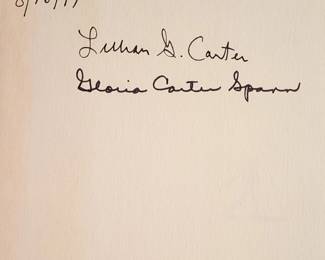 Lillian G. Carter
Gloria Carter Spann